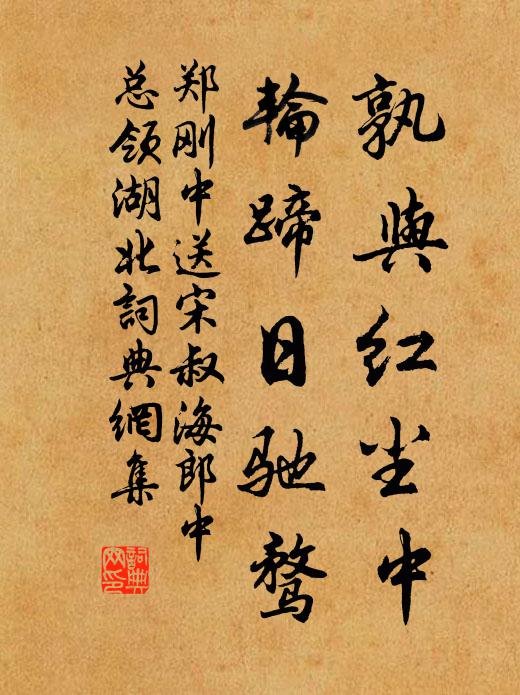 孰與红尘中
輪蹄日驰鹜
郑刚中送宋叔海郎中
总领湖北詞典網集
詞典网印